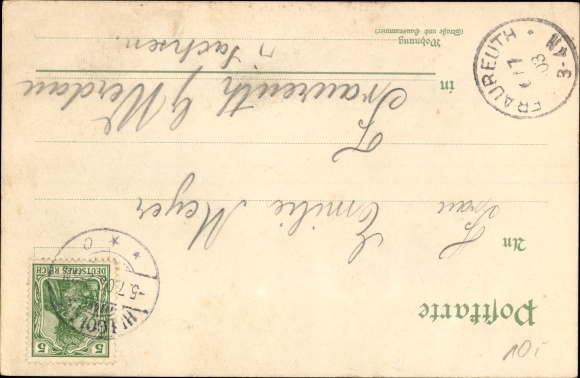 Postkarte
An
Frau Emilie Meyer
in Fraureuth b/ Werdau
Wohnung
(Straße und Hausnummer)
i/ Sachsen.
DEUTSCHES REICH
5
5
5.7.0
* * c
FRAUREUTH *
6/7
03
3-4 N
10,-